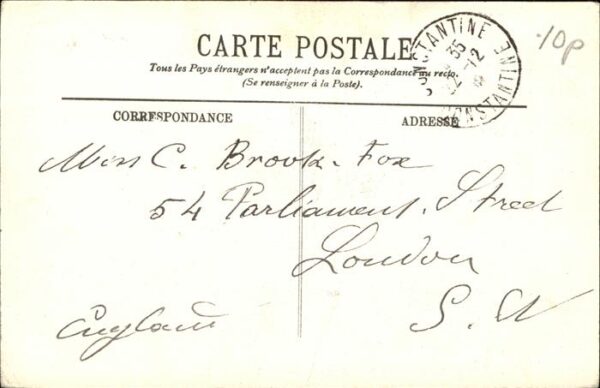 CARTE POSTALE
Tous les Pays étrangers n'acceptent pas la Correspondance au recto.
(Se renseigner à la Poste).
CONSTANTINE
CONSTANTINE
10p
CORRESPONDANCE
ADRESSE
Miss C. Brook-Fox
54 Parliament. Street
London
S. W
England